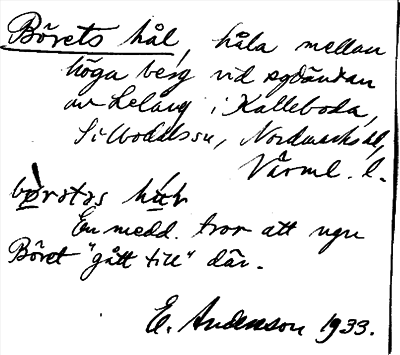 Börets hål, håla mellan
höga berg vid sydändan
av Lelång i Kalleboda,
Silbodals sn, Nordmarks hd,
Värml. l.
En medd. tror att ngn
Böret "gått till" där.
E. Andersson 1933.